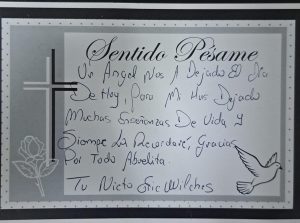 Sentido Pésame
Un Angel Nos A Dejado El Día
De Hoy, Para Mi Has Dejado
Muchas Enseñanzas De Vida Y
Siempre La Recordaré, Gracias
Por Todo Abuelita.
Tu Nieto Eric Wilches